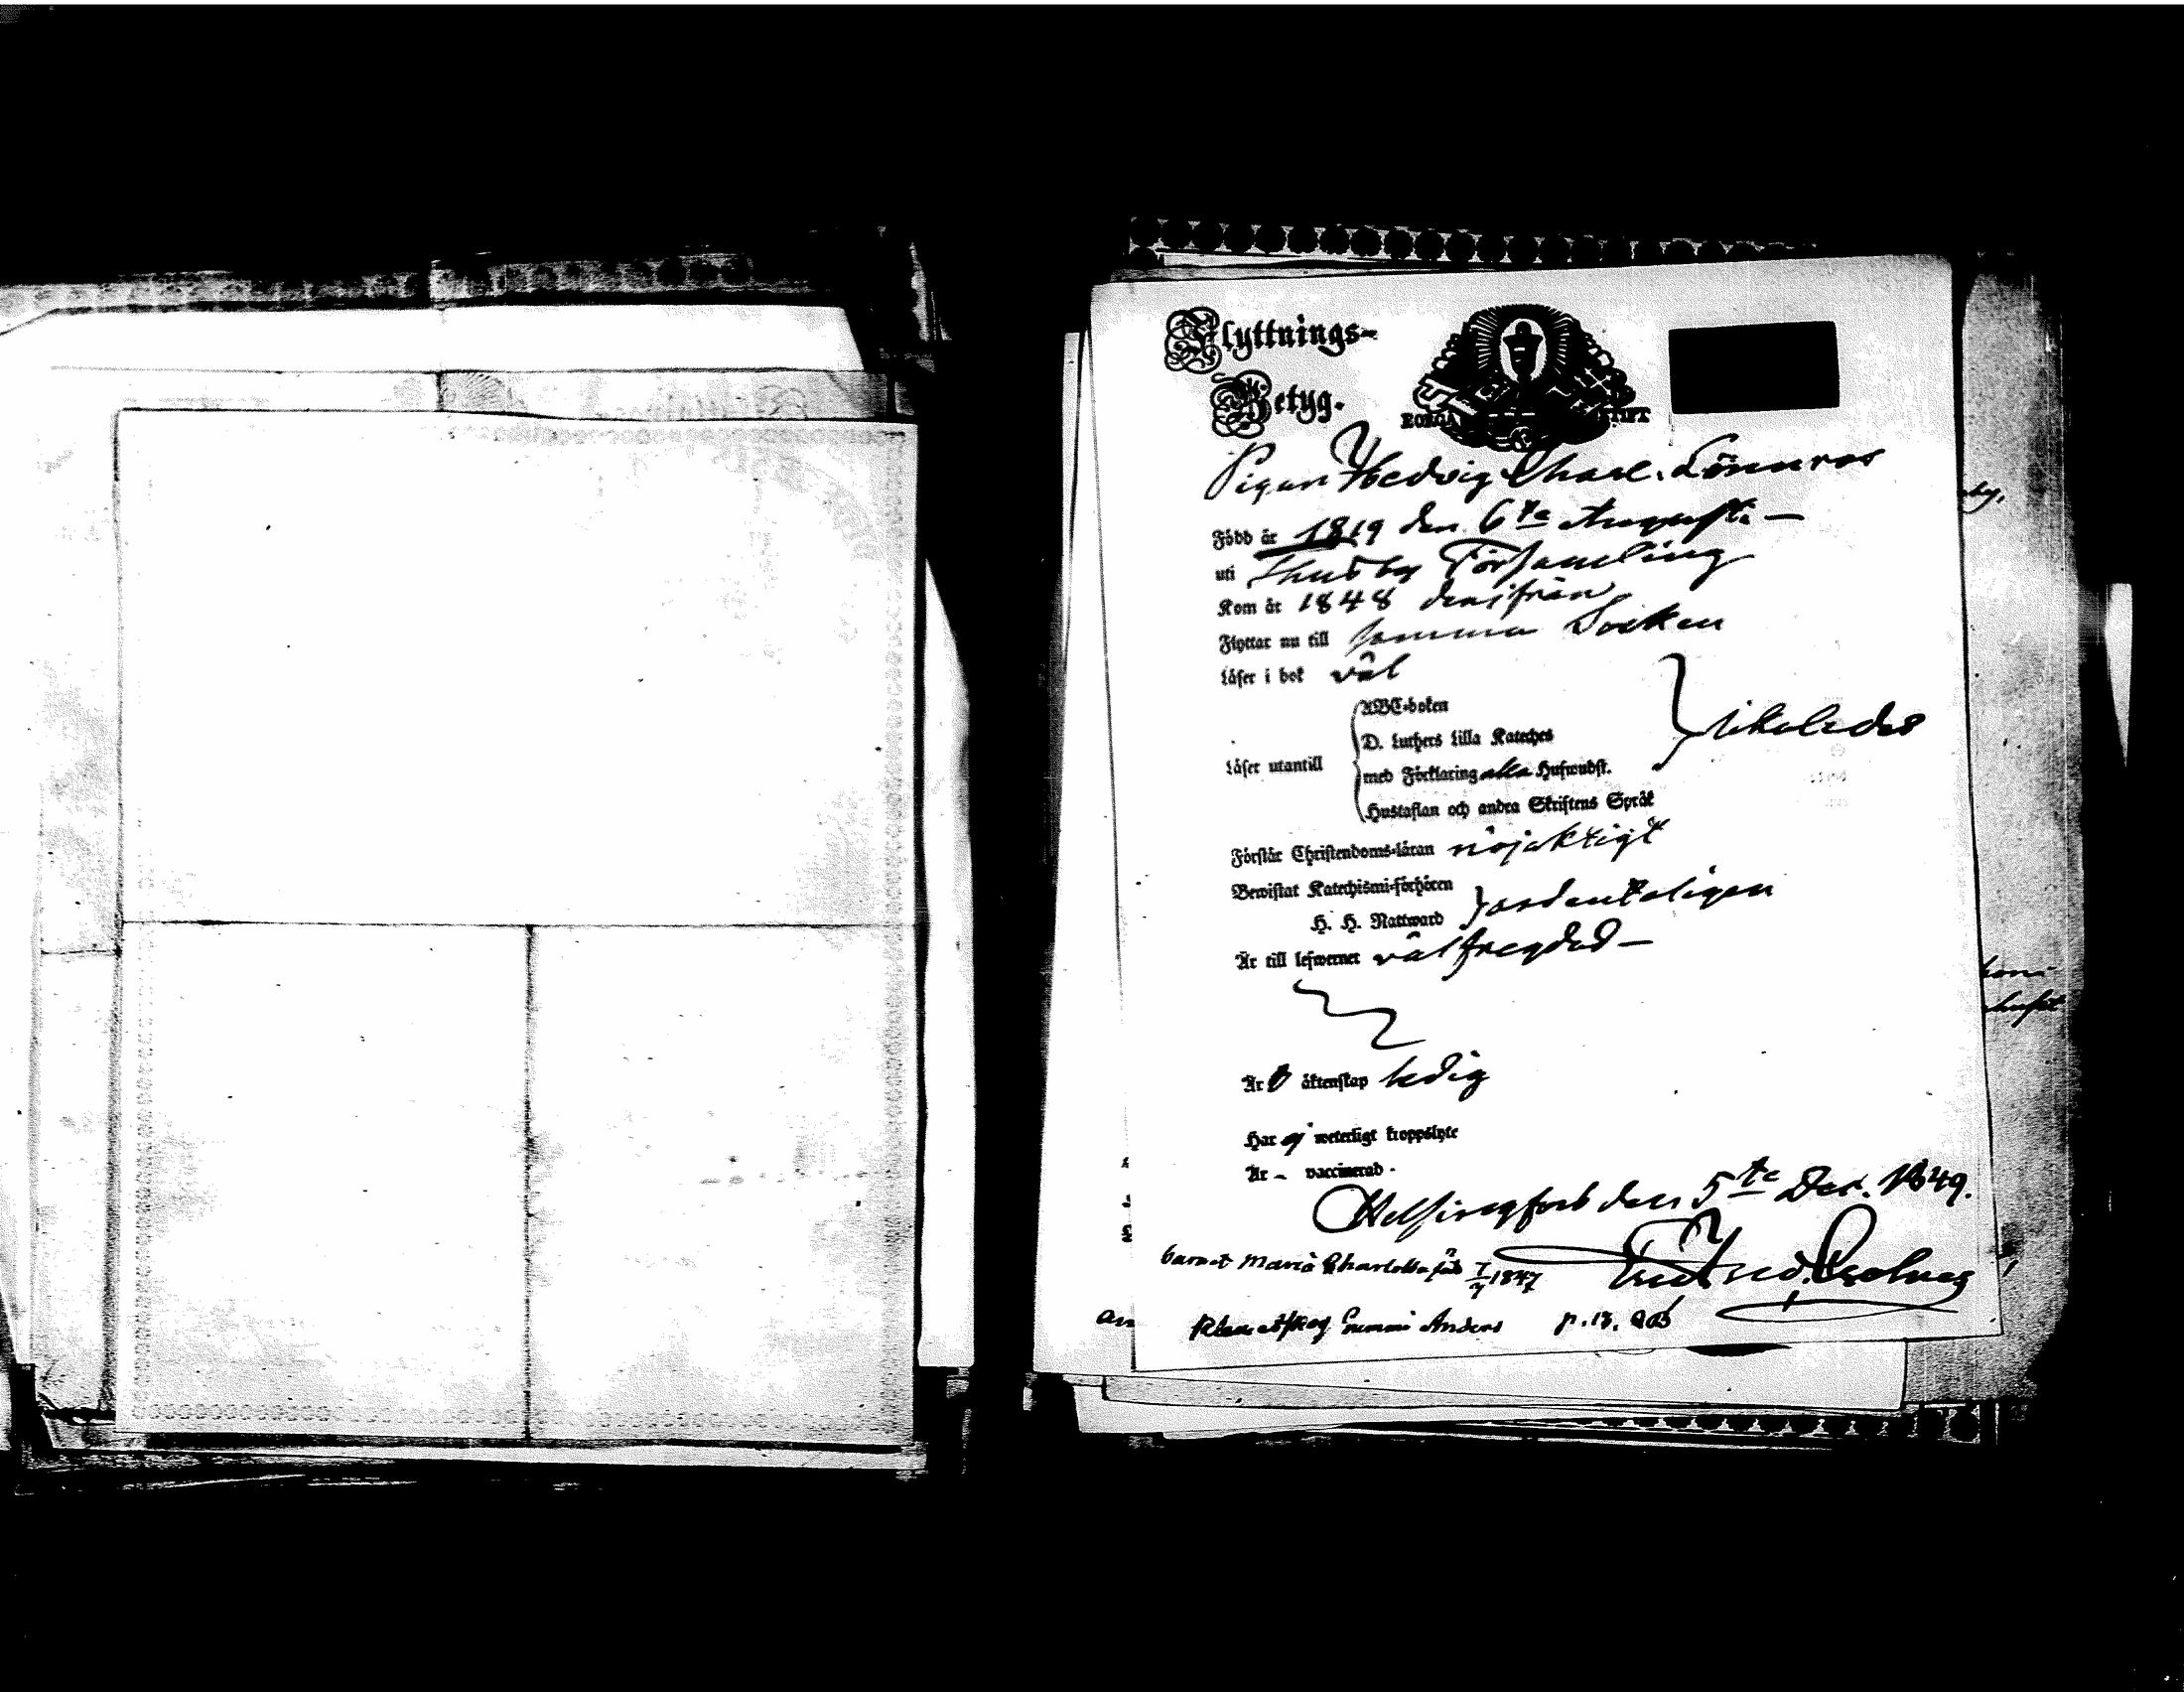 Flyttnings-
Betyg.
BORGÅ STIFT
Pigan Hedvig Charl. Lönnros
Född år 1819 den 6te Augusti —
uti Thusby Församling
Kom år 1848 derifrån
Flyttar nu till samma Socken
Läser i bok väl
ABC-boken
D. Luthers Lilla Kateches
Läser utantill med Förklaring alla Hufwudst.
Hustaflan och andra Skriftens Språk
Förstår Christendoms-läran nöjaktigt
Bewistat Katechismi-förhören
H. H. Nattward ordenteligen
Är till lefwernet välfregdad —
Är äktenskap ledig
Har ej weterligt kroppslyte
Är – vaccinerad.
Helsingfors den 5te Dec. 1849.
barnet Maria Charlotta föd 7/7 1847
Anders p. 13.